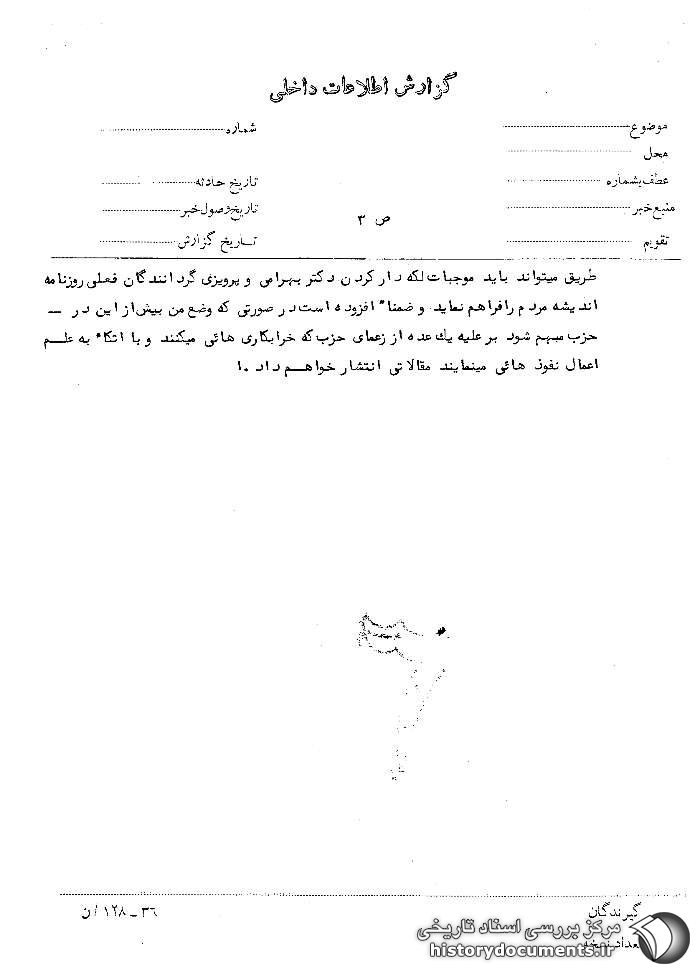 گزارش اطلاعات داخلی
موضوع
شماره
محل
عطف بشماره
تاریخ حادثه
منبع خبر
تاریخ وصول خبر
ص ۳
تقویم
تاریخ گزارش
طریق میتواند باید موجبات لکه دار کردن دکتر بهرامی و پرویزی گردانندگان فعلی روزنامه
اندیشه مردم را فراهم نماید و ضمناً افزوده است در صورتی که وضع من بیش از این در –
حزب مبهم شود بر علیه یک عده از زعمای حزب که خرابکاری هائی میکنند و با اتکاء به علم
اعمال نفوذ هائی مینمایند مقالاتی انتشار خواهم داد ۱۰
گیرندگان
۳۶ – ۱۲۸ / ن
تعداد نسخه
مرکز بررسی اسناد تاریخی
historydocuments.ir